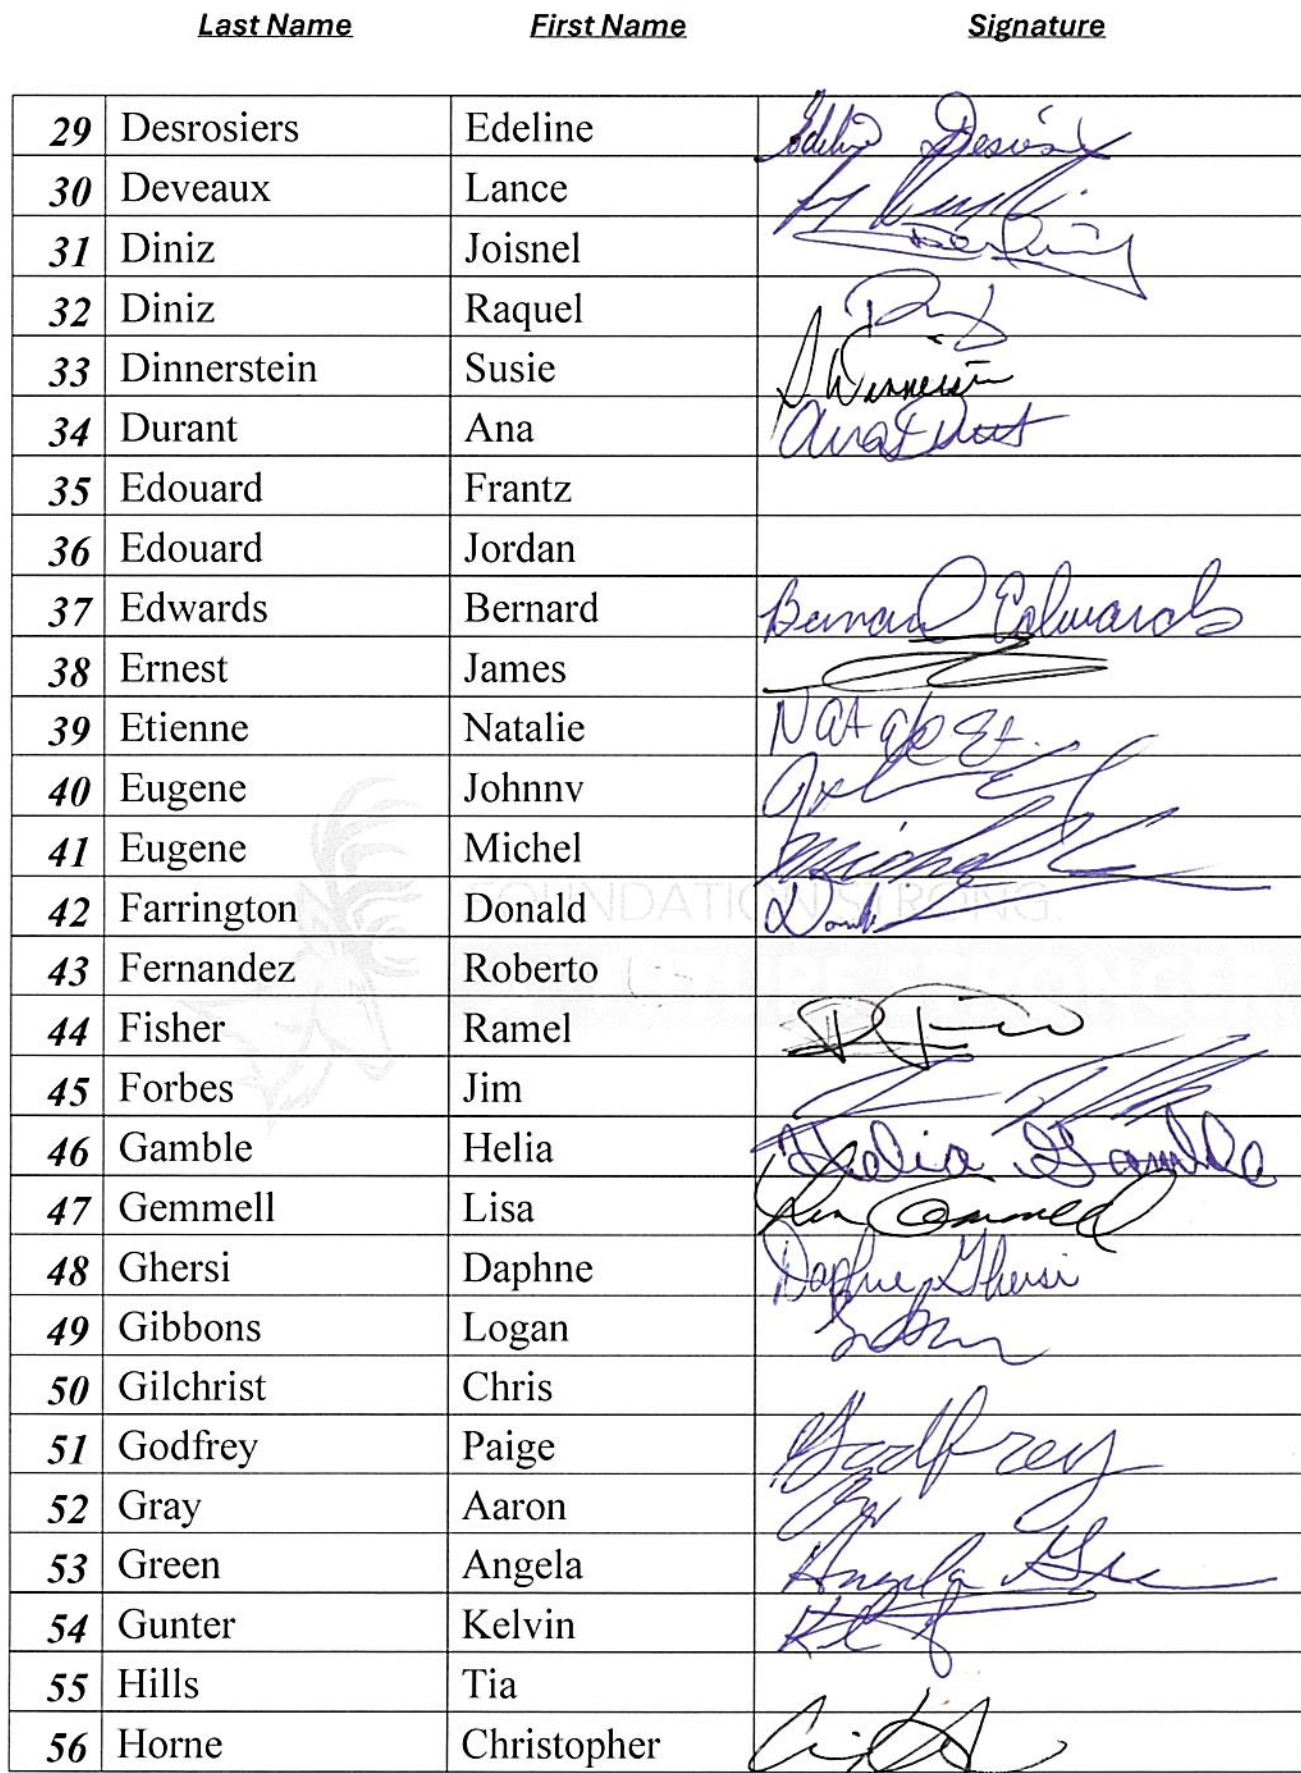 Last Name First Name Signature
29 Desrosiers Edeline
30 Deveaux Lance
31 Diniz Joisnel
32 Diniz Raquel
33 Dinnerstein Susie
34 Durant Ana
35 Edouard Frantz
36 Edouard Jordan
37 Edwards Bernard Bernard Edwards
38 Ernest James
39 Etienne Natalie
40 Eugene Johnnv
41 Eugene Michel
42 Farrington Donald
FOUNDATION STRONG.
43 Fernandez Roberto
44 Fisher Ramel
45 Forbes Jim
46 Gamble Helia Helia Gamble
47 Gemmell Lisa
48 Ghersi Daphne Daphne Ghersi
49 Gibbons Logan
50 Gilchrist Chris
51 Godfrey Paige Godfrey
52 Gray Aaron
53 Green Angela Angela
54 Gunter Kelvin
55 Hills Tia
56 Horne Christopher